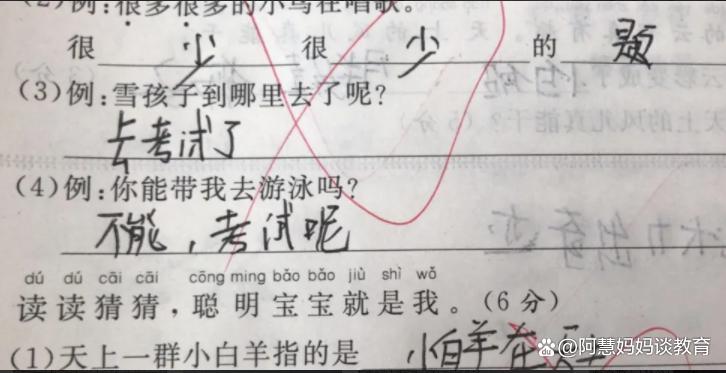 (2)例:很多很多的小鸟在唱歌。
很 少 很 少 的 题
(3)例:雪孩子到哪里去了呢?
去考试了
(4)例:你能带我去游泳吗?
不能,考试呢
dú dú cāi cāi cōng ming bǎo bǎo jiù shì wǒ
读读猜猜,聪明宝宝就是我。(6分)
(1)天上一群小白羊指的是 小白羊在天上
@阿慧妈妈谈教育